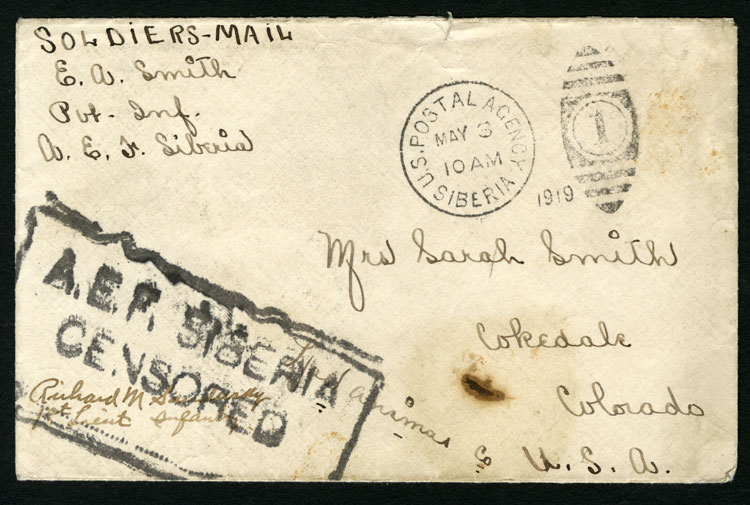 SOLDIERS-MAIL
E. A. Smith
Pvt. Inf.
A. E. F. Siberia
U.S. POSTAL AGENCY
MAY 3
10 AM
SIBERIA
1919
1
Mrs Sarah Smith
Cokedale
Colorado
U. S. A.
Animas Co
A.E.F. SIBERIA
CENSORED
Richard M
1st Lieut Infantry